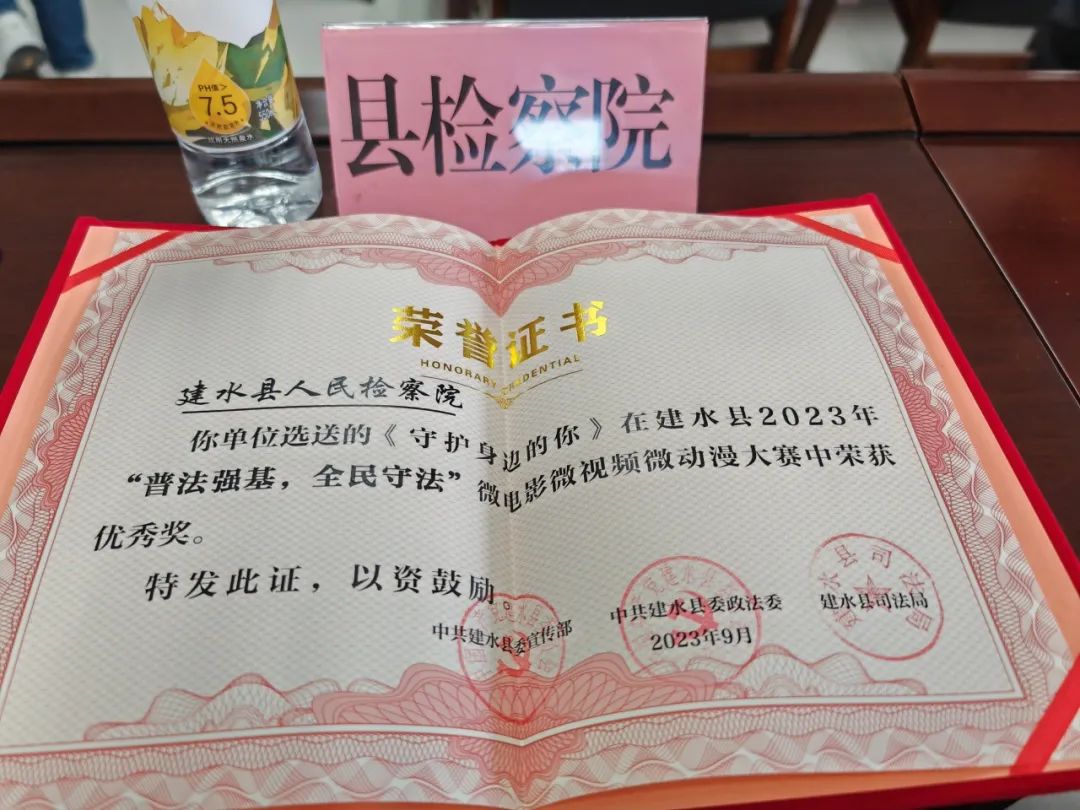 PH值>
7.5
县检察院
荣誉证书
HONORARY CREDENTIAL
建水县人民检察院
你单位选送的《守护身边的你》在建水县2023年
“普法强基，全民守法”微电影微视频微动漫大赛中荣获
优秀奖。
特发此证，以资鼓励。
中共建水县委宣传部
中共建水县委政法委
建水县司法局
2023年9月
建水县司法局